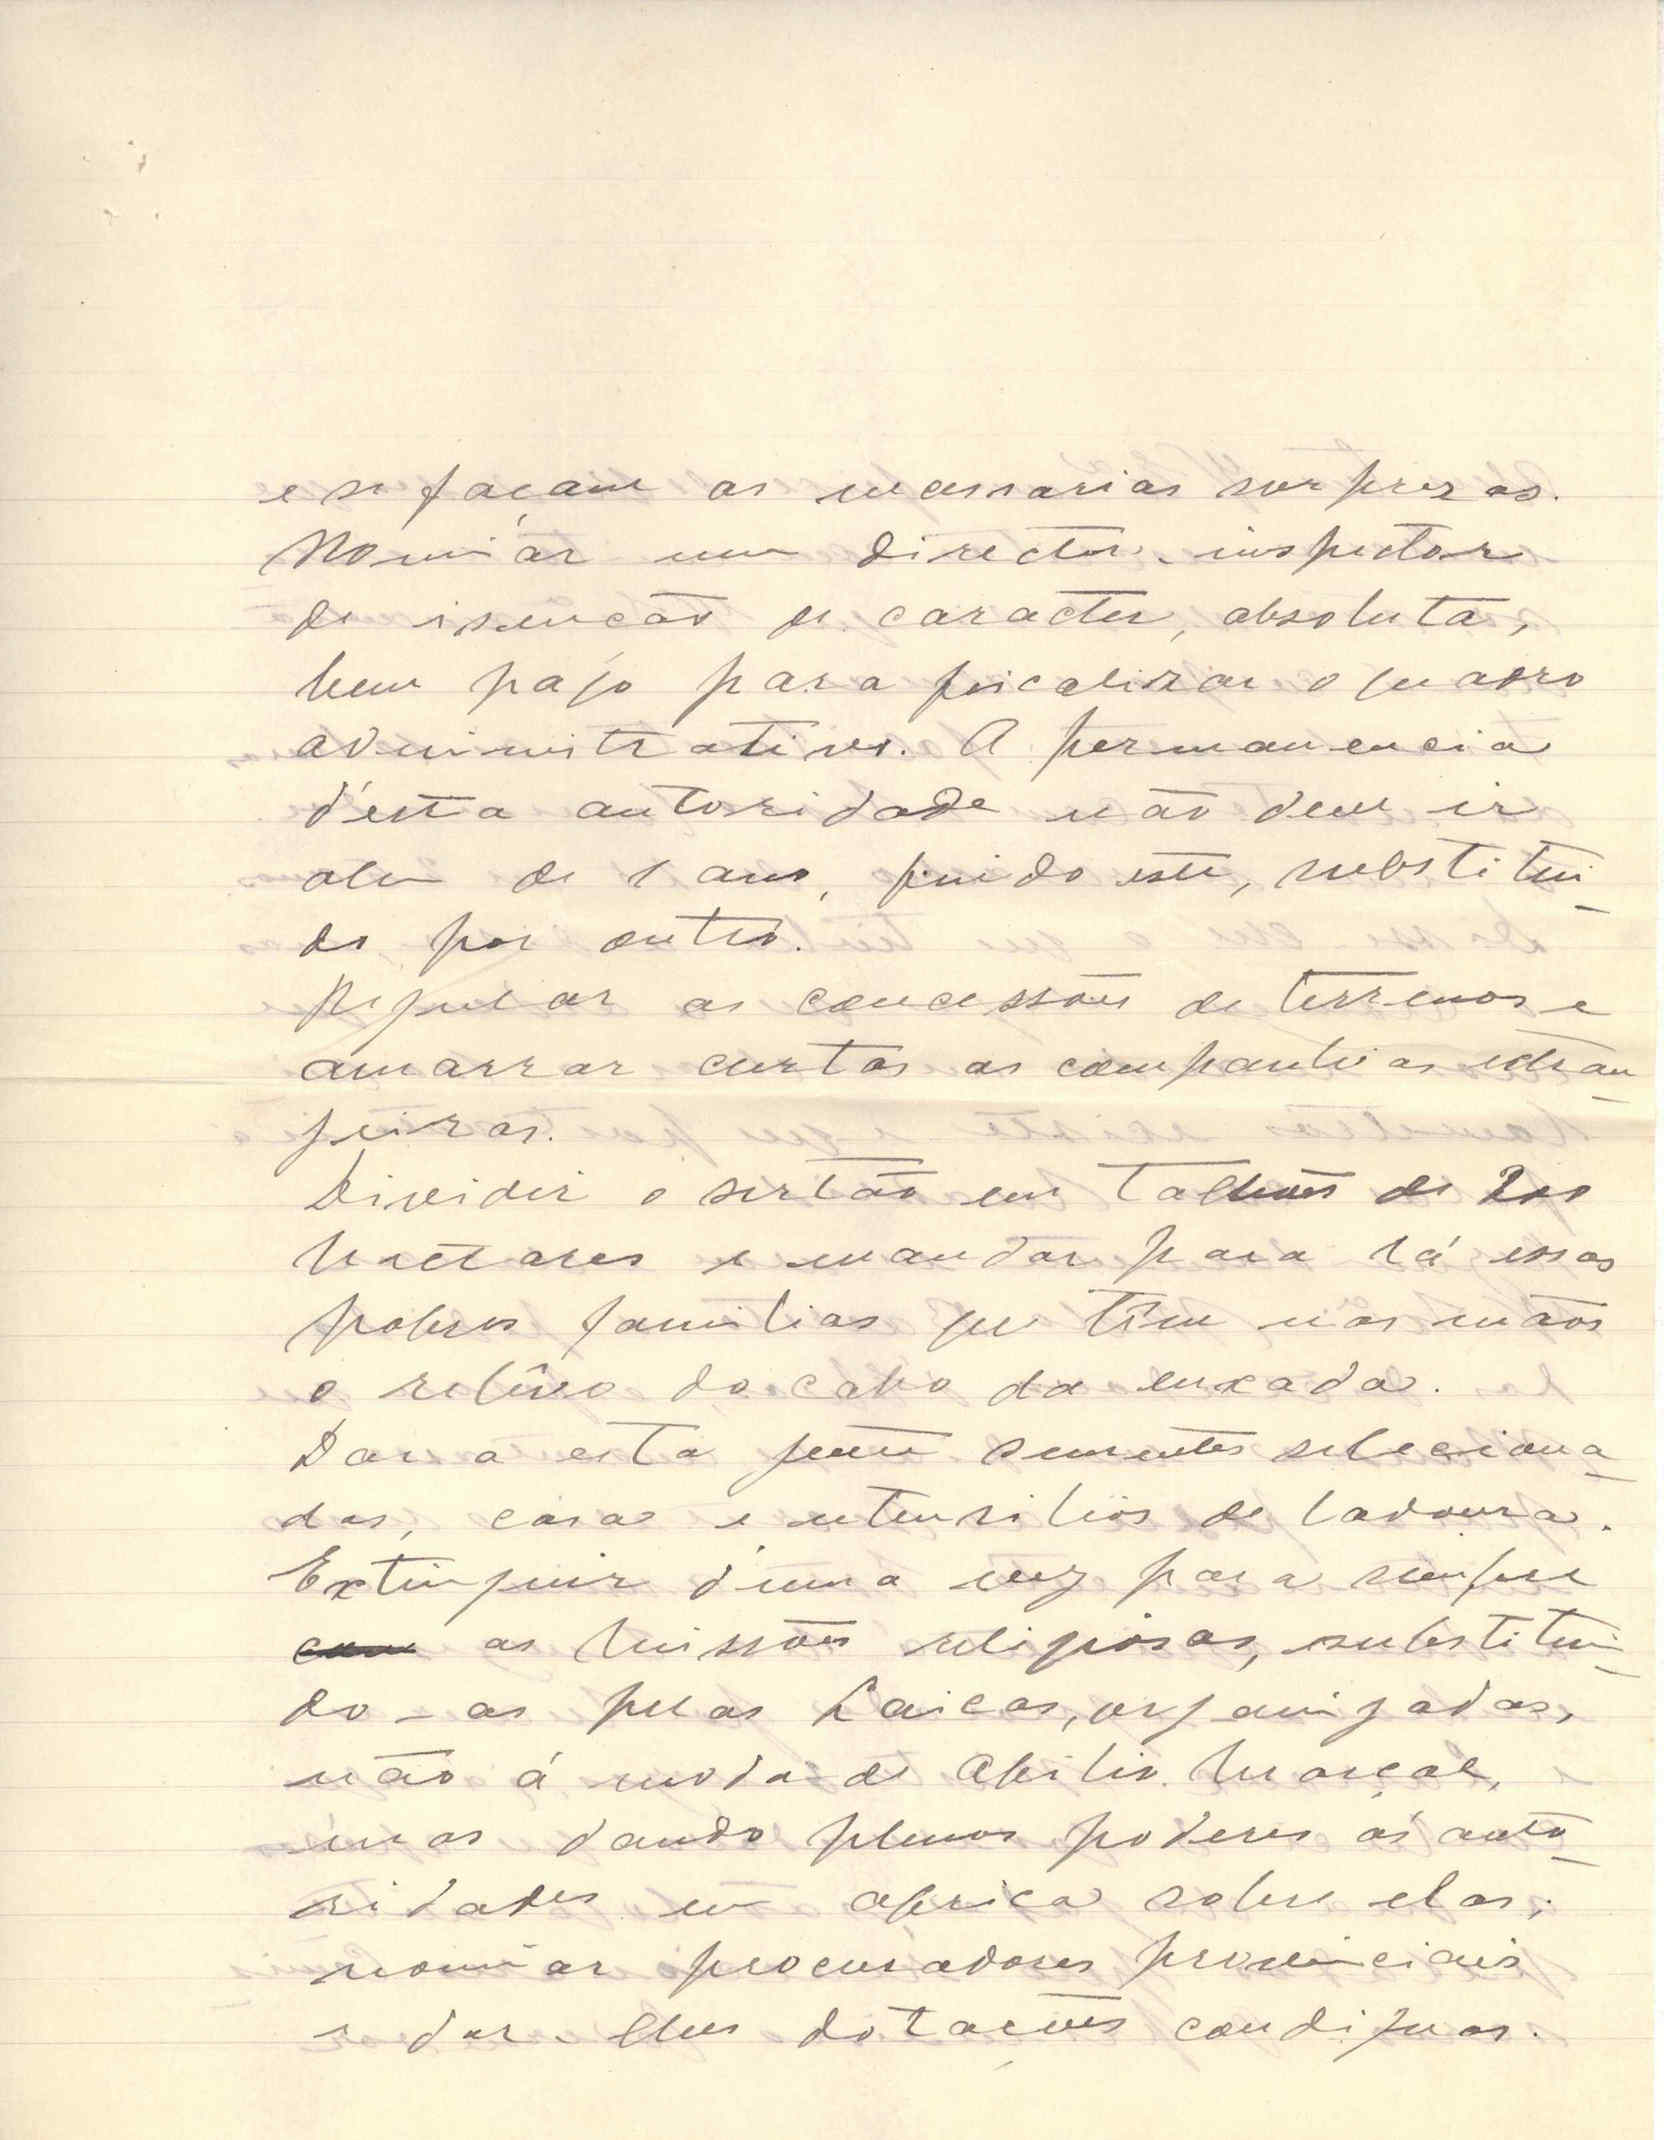 e se façam as necessarias surprezas.
Nomiar um director-inspector
de isenção de caracter, absoluta,
bem pago para fiscalizar o quadro
administrativo. A permanencia
d'esta autoridade não deve ir
alem de 1 ano, findo este, substitui-
do por outro.
Regular as concessões de terrenos e
amarrar curtas as companhias estran-
geiras.
Dividir o sertão em talhões de 200
hectares e mandar para lá essas
pobres familias que têm nas mãos
o relêvo do cabo da enxada.
Dar a esta gente sementes seleciona-
das, casa e utensilios de lavoura.
Extinguir d'uma vez para sempre
as missões religiosas, substitui-
do-as pelas Laicas, organizadas,
não á moda de Abilio Marçal,
mas dando plenos poderes ás auto-
ridades em Africa sobre elas;
nomiar procuradores provinciais
e dar-lhes dotações condignas.